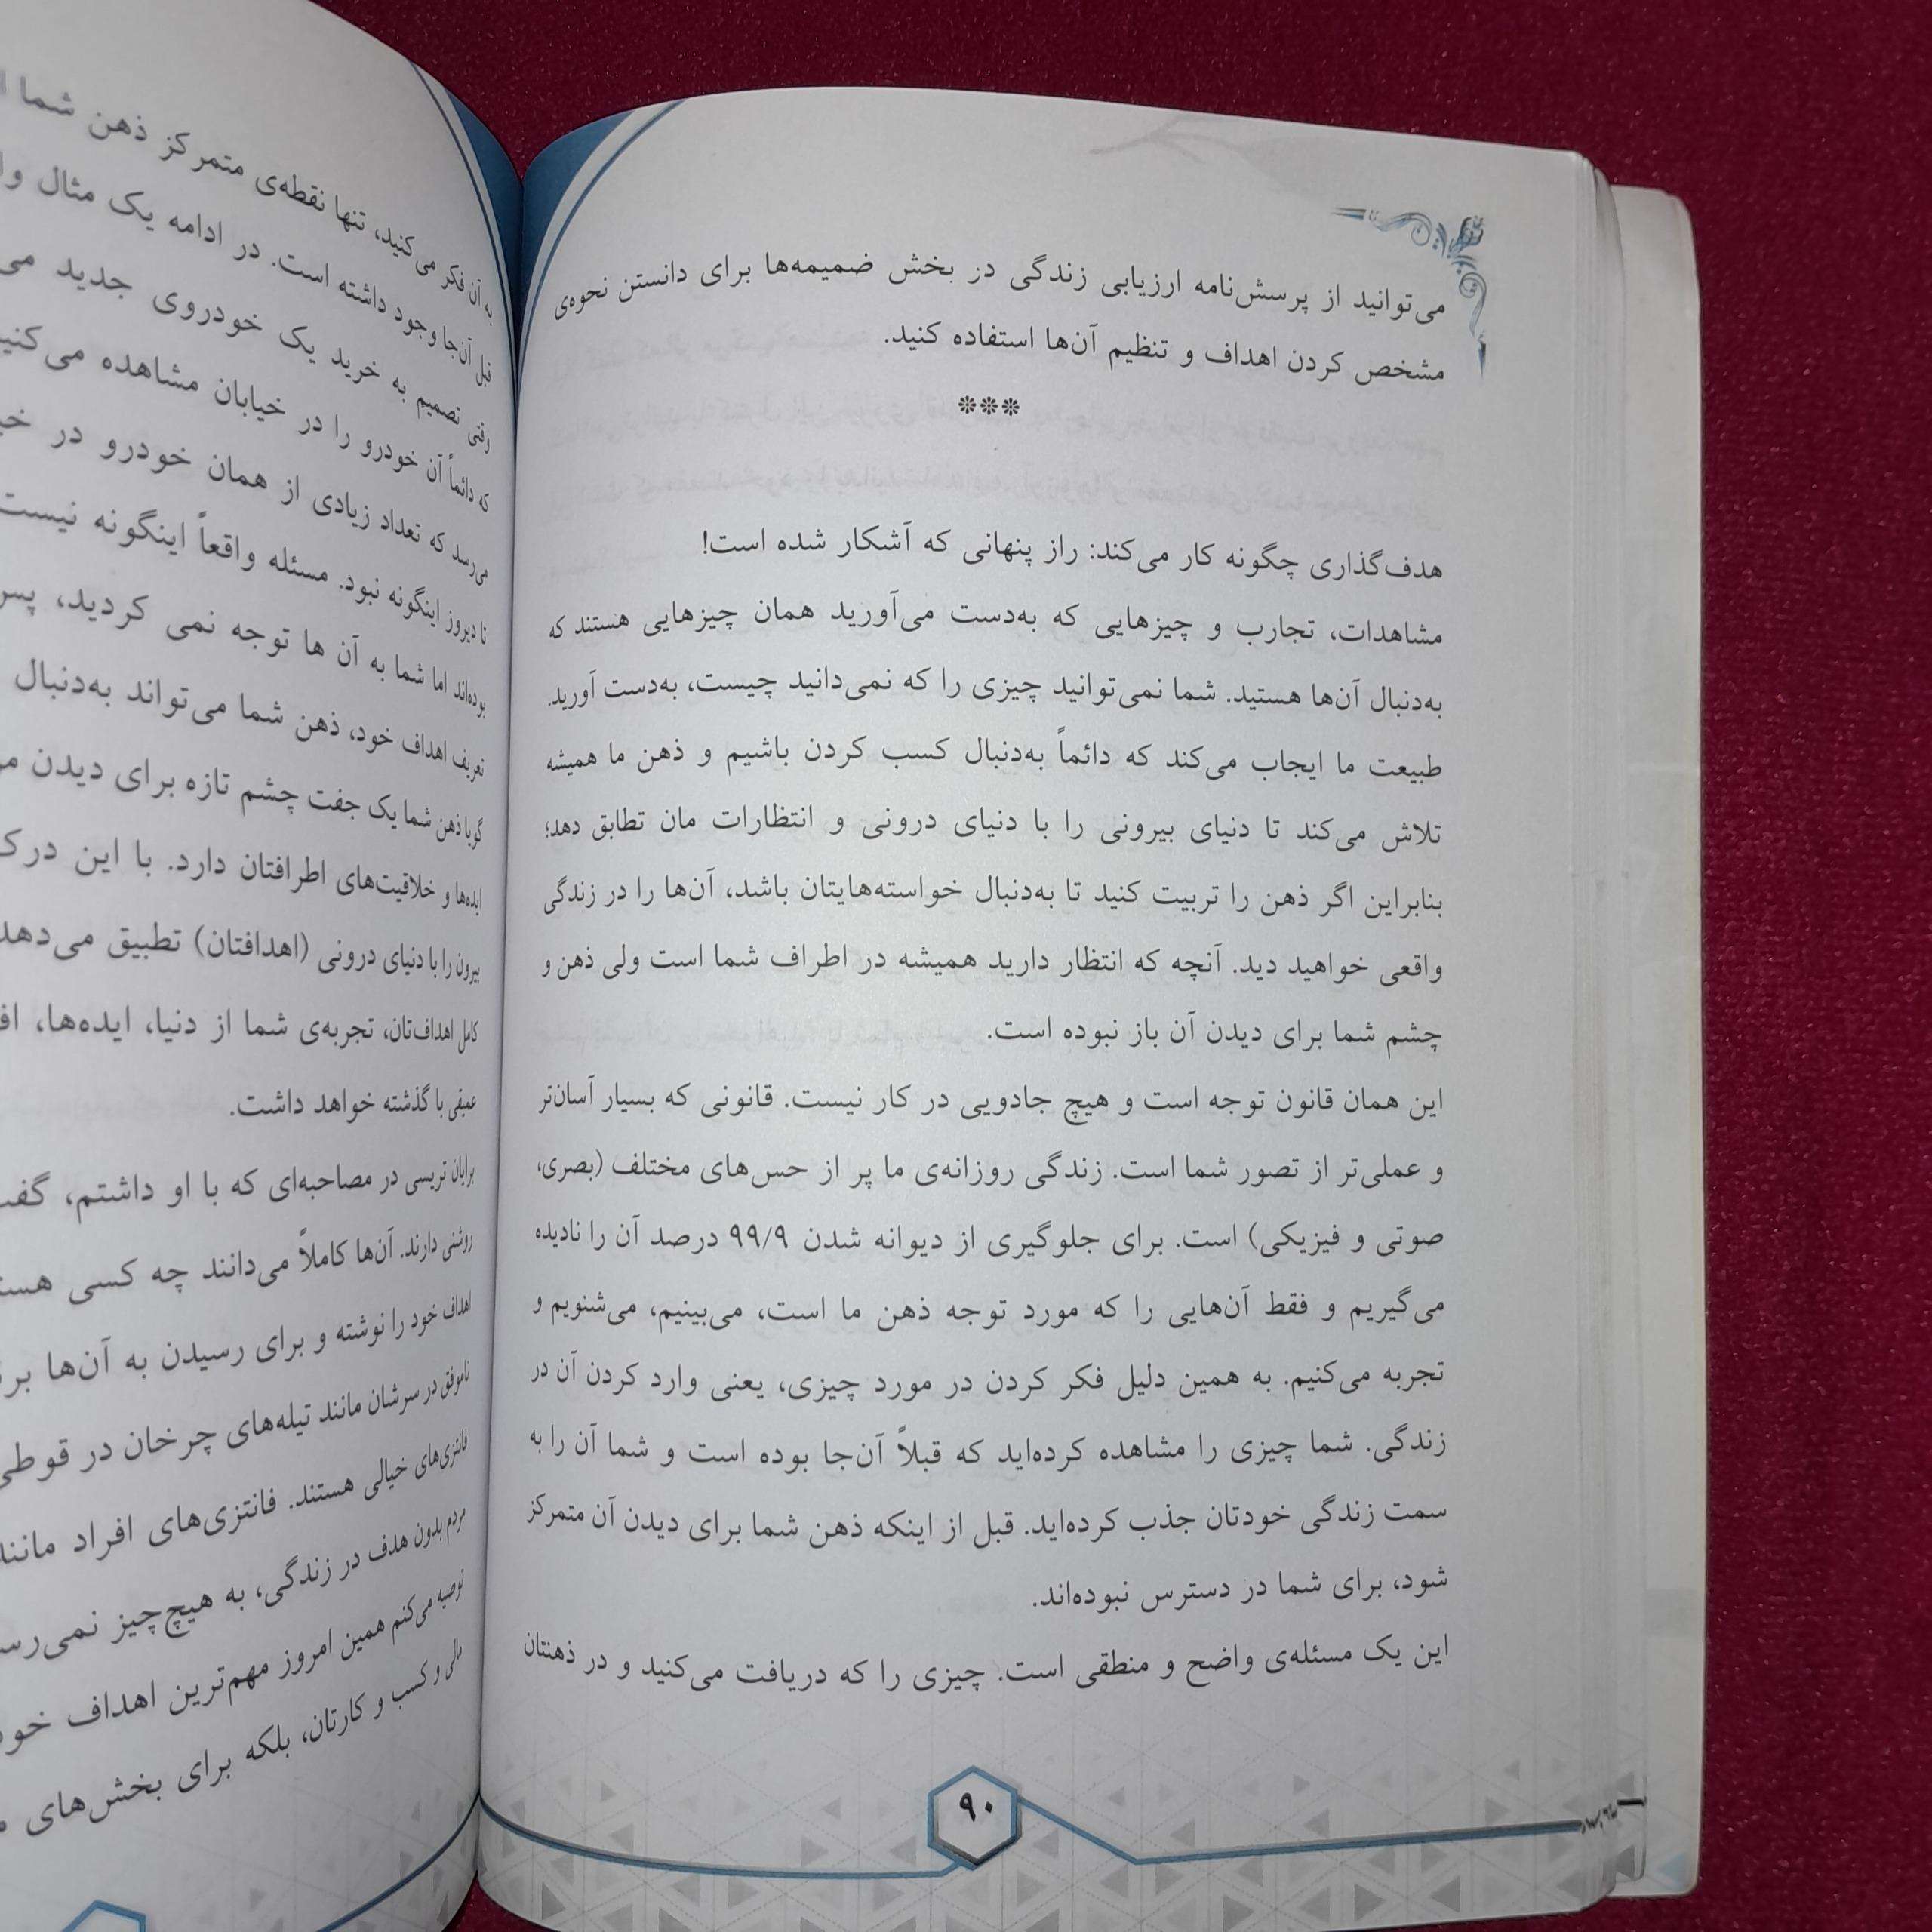 می‌توانید از پرسش‌نامه ارزیابی زندگی در بخش ضمیمه‌ها برای دانستن نحوه‌ی
مشخص کردن اهداف و تنظیم آن‌ها استفاده کنید.
***
هدف‌گذاری چگونه کار می‌کند: راز پنهانی که آشکار شده است!
مشاهدات، تجارب و چیزهایی که به‌دست می‌آورید همان چیزهایی هستند که
به‌دنبال آن‌ها هستید. شما نمی‌توانید چیزی را که نمی‌دانید چیست، به‌دست آورید.
طبیعت ما ایجاب می‌کند که دائماً به‌دنبال کسب کردن باشیم و ذهن ما همیشه
تلاش می‌کند تا دنیای بیرونی را با دنیای درونی و انتظارات مان تطابق دهد؛
بنابراین اگر ذهن را تربیت کنید تا به‌دنبال خواسته‌هایتان باشد، آن‌ها را در زندگی
واقعی خواهید دید. آنچه که انتظار دارید همیشه در اطراف شما است ولی ذهن و
چشم شما برای دیدن آن باز نبوده است.
این همان قانون توجه است و هیچ جادویی در کار نیست. قانونی که بسیار آسان‌تر
و عملی‌تر از تصور شما است. زندگی روزانه‌ی ما پر از حس‌های مختلف (بصری،
صوتی و فیزیکی) است. برای جلوگیری از دیوانه شدن ۹۹/۹ درصد آن را نادیده
می‌گیریم و فقط آن‌هایی را که مورد توجه ذهن ما است، می‌بینیم، می‌شنویم و
تجربه می‌کنیم. به همین دلیل فکر کردن در مورد چیزی، یعنی وارد کردن آن در
زندگی. شما چیزی را مشاهده کرده‌اید که قبلاً آن‌جا بوده است و شما آن را به
سمت زندگی خودتان جذب کرده‌اید. قبل از اینکه ذهن شما برای دیدن آن متمرکز
شود، برای شما در دسترس نبوده‌اند.
این یک مسئله‌ی واضح و منطقی است. چیزی را که دریافت می‌کنید و در ذهنتان
۹۰
به آن فکر می‌کنید، تنها نقطه‌ی متمرکز ذهن شما
قبل آن‌جا وجود داشته است. در ادامه یک مثال
وقتی تصمیم به خرید یک خودروی جدید
که دائماً آن خودرو را در خیابان مشاهده
می‌رسد که تعداد زیادی از همان خودرو در
تا دیروز اینگونه نبود. مسئله واقعاً اینگونه نیست
بوده‌اند اما شما به آن ها توجه نمی کردید،
تعریف اهداف خود، ذهن شما می‌تواند به‌دنبال
گویا ذهن شما یک جفت چشم تازه برای دیدن
ایده‌ها و خلاقیت‌های اطرافتان دارد. با این
بیرون را با دنیای درونی (اهدافتان) تطبیق می‌دهد
کامل اهداف‌تان، تجربه‌ی شما از دنیا، ایده‌ها،
عمیقی با گذشته خواهد داشت.
برایان تریسی در مصاحبه‌ای که با او داشتم،
روشنی دارند. آن‌ها کاملاً می‌دانند چه کسی
اهداف خود را نوشته و برای رسیدن به آن‌ها
ناموفق در سرشان مانند تیله‌های چرخان در
فانتزی‌های خیالی هستند. فانتزی‌های افراد
مردم بدون هدف در زندگی، به هیچ‌چیز
توصیه می‌کنم همین امروز مهم‌ترین اهداف
مالی و کسب و کارتان، بلکه برای بخش‌های